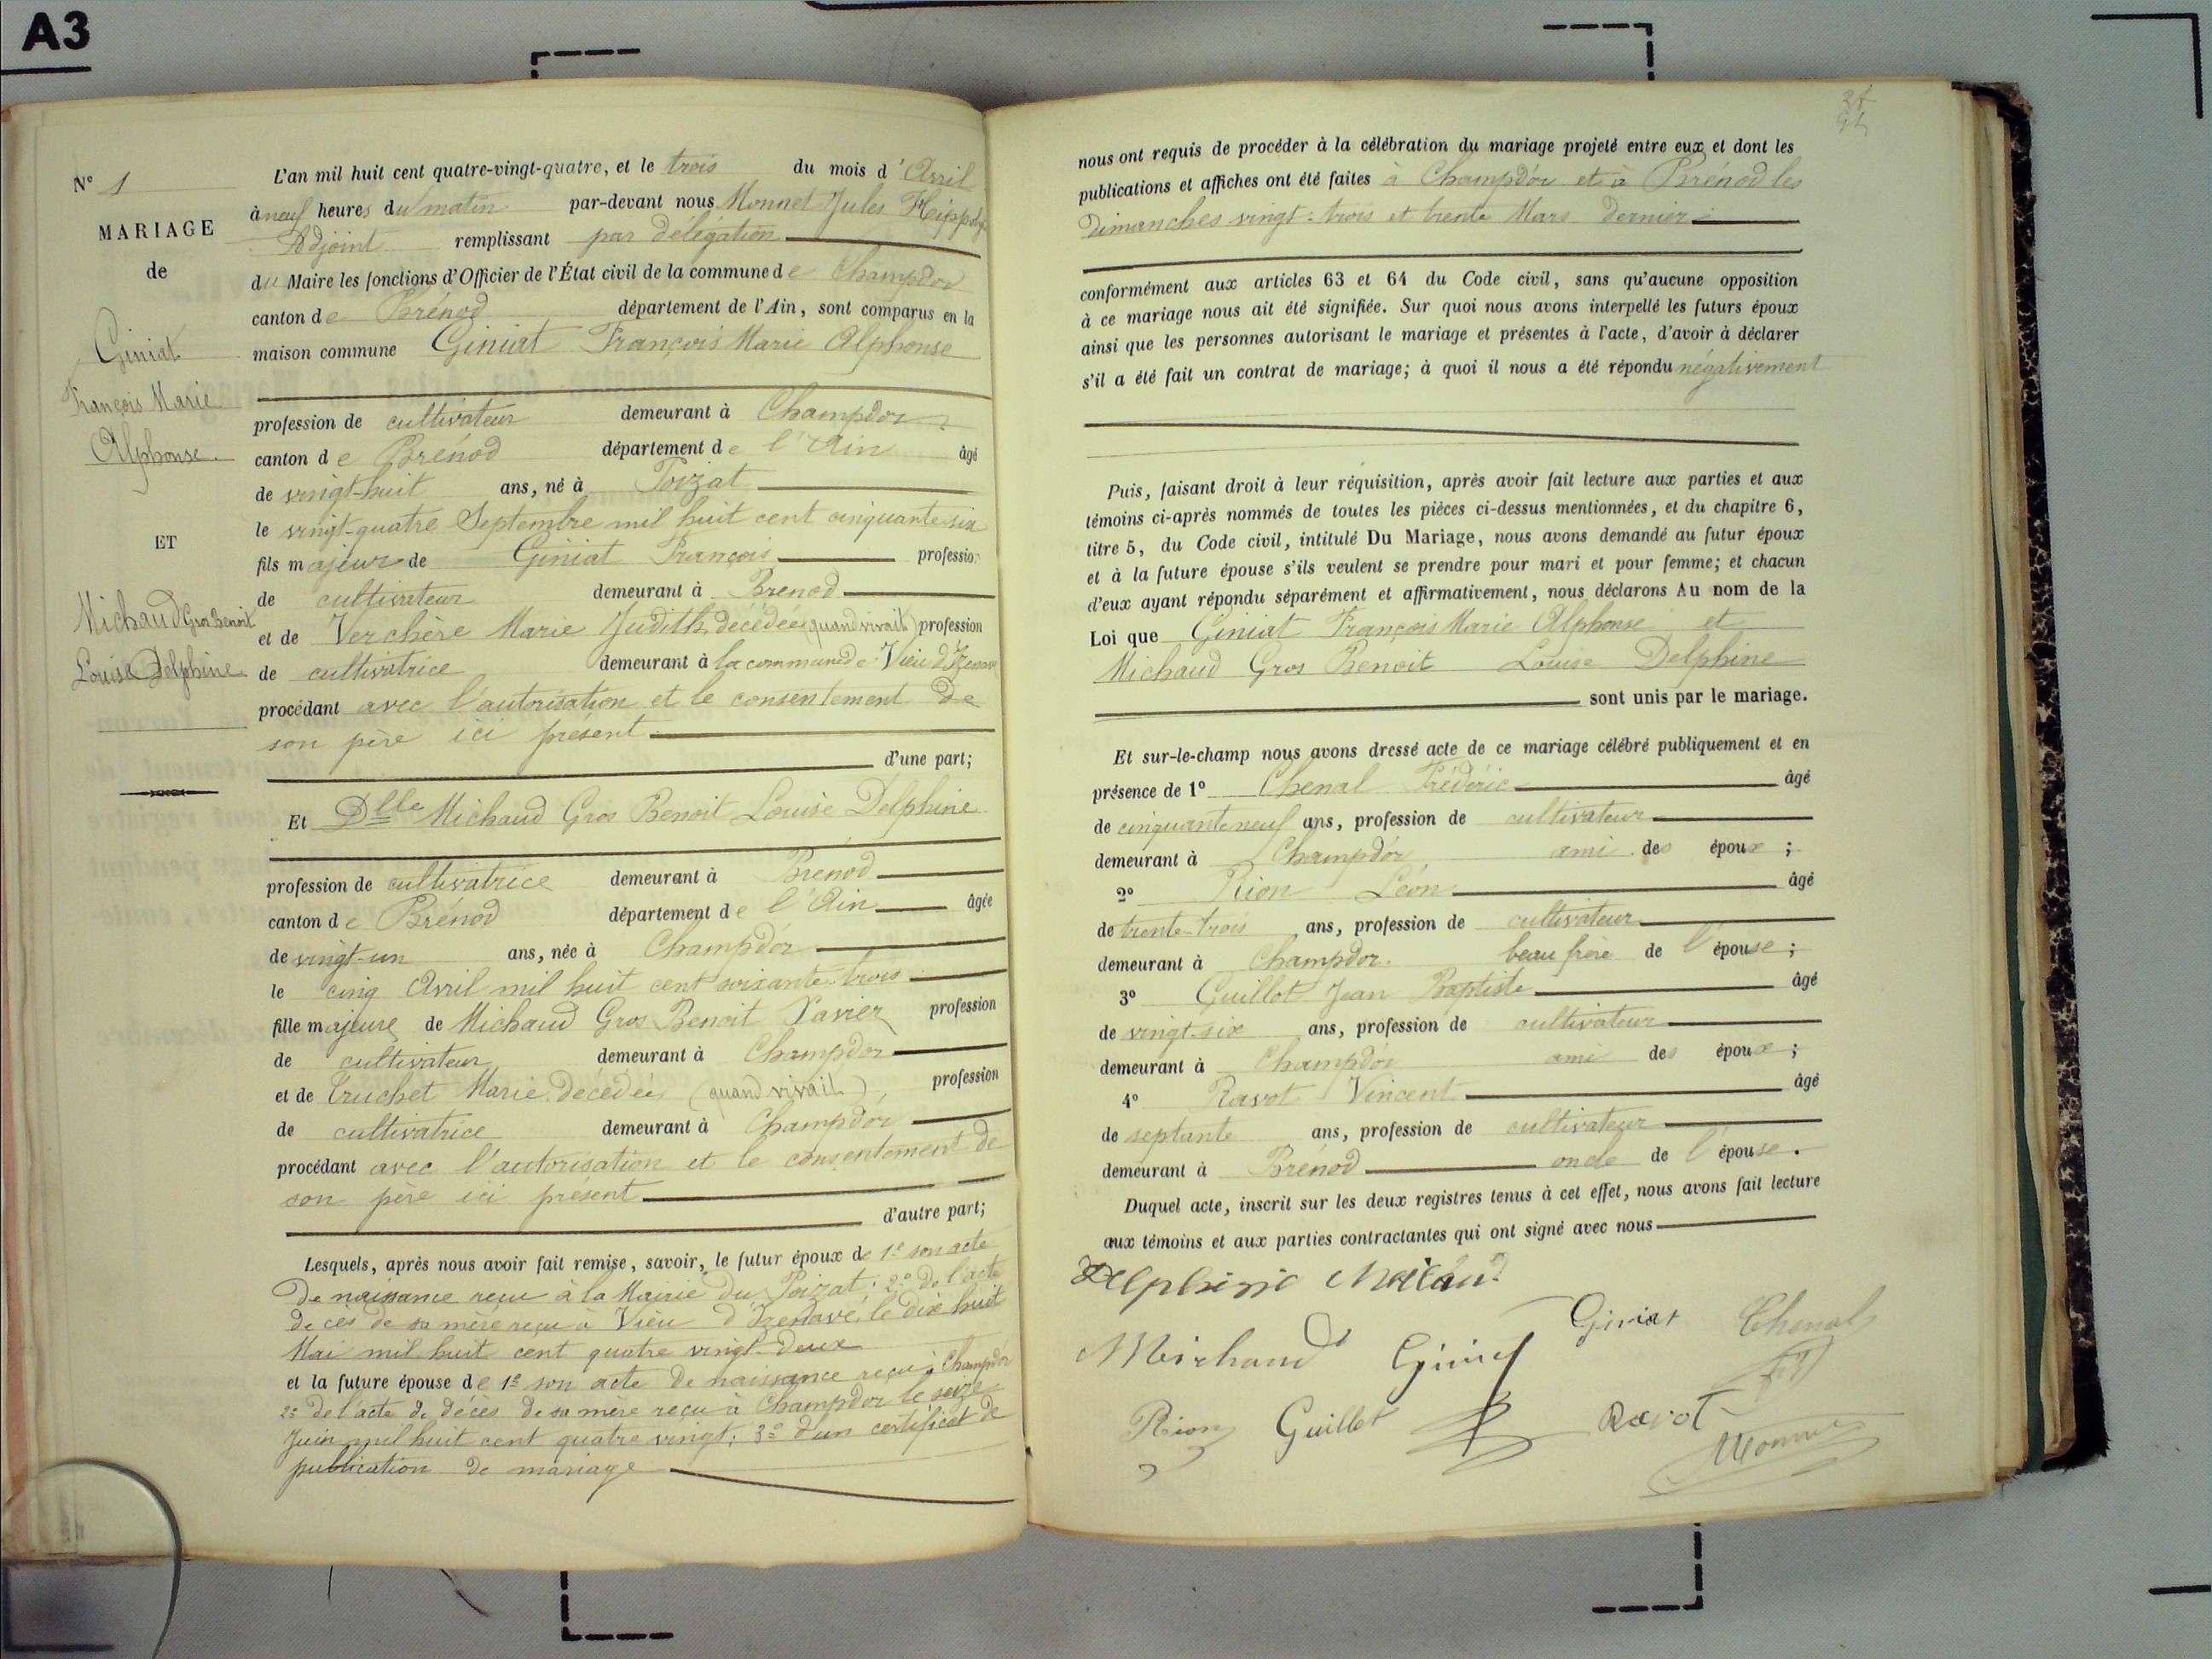 A3
N° 1
MARIAGE
de
Giniat
François Marie
Alphonse.
ET
Michaud Gros Benoit
Louise Delphine
L'an mil huit cent quatre-vingt-quatre, et le trois du mois d'Avril
à neuf heures du matin par-devant nous Monnet Jules Hippolyte
Adjoint remplissant par délégation
du Maire les fonctions d'Officier de l'État civil de la commune de Champdor
canton de Brénod département de l'Ain, sont comparus en la
maison commune Giniat François Marie Alphonse
profession de cultivateur demeurant à Champdor
canton de Brénod département de l'Ain âgé
de vingt-huit ans, né à Poizat
le vingt-quatre Septembre mil huit cent cinquante-six
fils majeur de Giniat François profession
de cultivateur demeurant à Brenod
et de Verchère Marie Judith décédée (quand vivait) profession
de cultivatrice demeurant à la commune de Vieu d'Izenave
procédant avec l'autorisation et le consentement de
son père ici présent
d'une part;
Et Dlle Michaud Gros Benoit Louise Delphine
profession de cultivatrice demeurant à Brénod
canton de Brénod département de l'Ain âgée
de vingt-un ans, née à Champdor
le cinq Avril mil huit cent soixante-trois
fille majeure de Michaud Gros Benoit Xavier profession
de cultivateur demeurant à Champdor
et de Truchet Marie décédée (quand vivait), profession
de cultivatrice demeurant à Champdor
procédant avec l'autorisation et le consentement de
son père ici présent
d'autre part;
Lesquels, après nous avoir fait remise, savoir, le futur époux de 1° son acte
de naissance reçu à la Mairie du Poizat; 2° de l'acte
de cès de sa mère reçu à Vieu d'Izenave, le dix huit
Mai mil huit cent quatre vingt-deux
et la future épouse de 1° son acte de naissance reçu à Champdor
2° de l'acte de décès de sa mère reçu à Champdor le seize
Juin mil huit cent quatre vingt; 3° d'un certificat de
publication de mariage
nous ont requis de procéder à la célébration du mariage projeté entre eux et dont les
publications et affiches ont été faites à Champdor et à Brénod les
dimanches vingt-trois et trente Mars dernier
conformément aux articles 63 et 64 du Code civil, sans qu'aucune opposition
à ce mariage nous ait été signifiée. Sur quoi nous avons interpellé les futurs époux
ainsi que les personnes autorisant le mariage et présentes à l'acte, d'avoir à déclarer
s'il a été fait un contrat de mariage; à quoi il nous a été répondu négativement
Puis, faisant droit à leur réquisition, après avoir fait lecture aux parties et aux
témoins ci-après nommés de toutes les pièces ci-dessus mentionnées, et du chapitre 6,
titre 5, du Code civil, intitulé Du Mariage, nous avons demandé au futur époux
et à la future épouse s'ils veulent se prendre pour mari et pour femme; et chacun
d'eux ayant répondu séparément et affirmativement, nous déclarons Au nom de la
Loi que Giniat François Marie Alphonse et
Michaud Gros Benoit Louise Delphine
sont unis par le mariage.
Et sur-le-champ nous avons dressé acte de ce mariage célébré publiquement et en
présence de 1° Chenal Frédéric âgé
de cinquante neuf ans, profession de cultivateur
demeurant à Champdor, ami des époux;
2° Rion Léon âgé
de trente-trois ans, profession de cultivateur
demeurant à Champdor. beau frère de l'épouse;
3° Guillot Jean Baptiste âgé
de vingt-six ans, profession de cultivateur
demeurant à Champdor ami des époux;
4° Ravot Vincent âgé
de septante ans, profession de cultivateur
demeurant à Brénod oncle de l'épouse.
Duquel acte, inscrit sur les deux registres tenus à cet effet, nous avons fait lecture
aux témoins et aux parties contractantes qui ont signé avec nous
Delphine Michaud
Michaud Giniat Giniat Chenal
Rion Guillot Ravot
Monnet